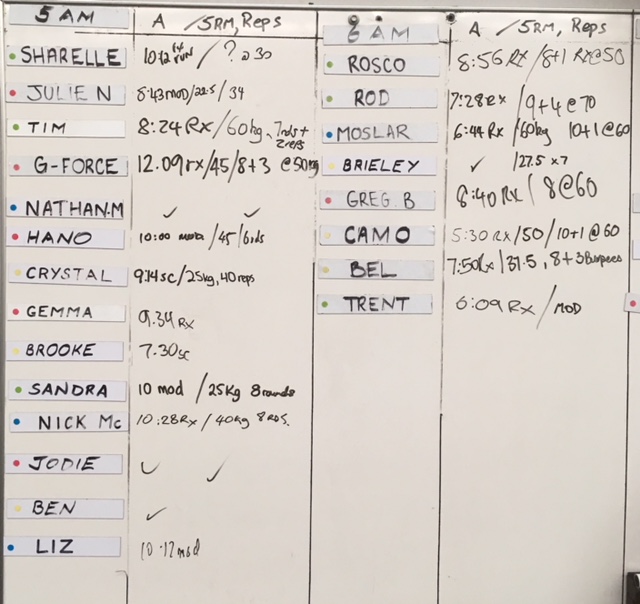 5 AM A / 5RM, Reps
SHARELLE 10:12 RUN / ? @ 30
JULIE N 8:43 MOD/22.5/34
TIM 8:24 Rx/60kg, 7rds +
2reps
G-FORCE 12.09rx/45/8+3 @50kg
NATHAN.M ✓ ✓
HANO 10:00 /45/6rds
CRYSTAL 9:14sc/25kg, 40reps
GEMMA 9.34 Rx
BROOKE 7.30sc
SANDRA 10 mod /25Kg 8rounds
NICK Mc 10:28Rx/40kg 8RDS.
JODIE ✓ ✓
BEN ✓
LIZ 10:17mod
6 AM A / 5RM, Reps
ROSCO 8:56 Rx /8+1 RX@50
ROD 7:28Rx / 9+4@70
MOSLAR 6:44 Rx /60kg 10+1@60
BRIELEY ✓ /27.5 x7
GREG. B 8:40 Rx / 8@60
CAMO 5:30 Rx/50/10+1@60
BEL 7:50Rx/37.5, 8+3Burpees
TRENT 6:09 Rx/MOD